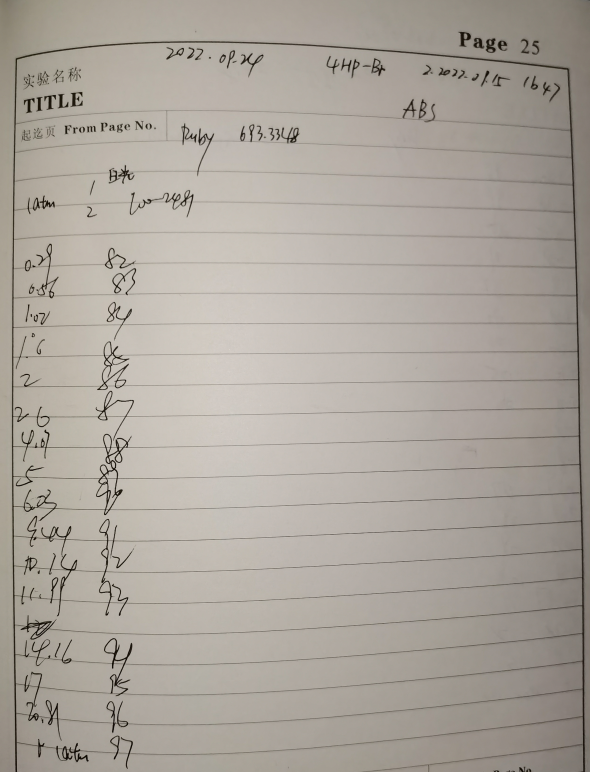 Page 25
2022.09.24 4HP-Br 2.2022.09.15 1647
实验名称
TITLE
ABS
起迄页 From Page No.
Ruby 693.3348
1
1atm
2
0.29 82
0.56 83
1.02 84
1.6 85
2 86
2.6 87
4.07 88
5
6.03 90
91
10.14 92
11.99 93
14.16 94
17 95
20.81 96
1atm 97